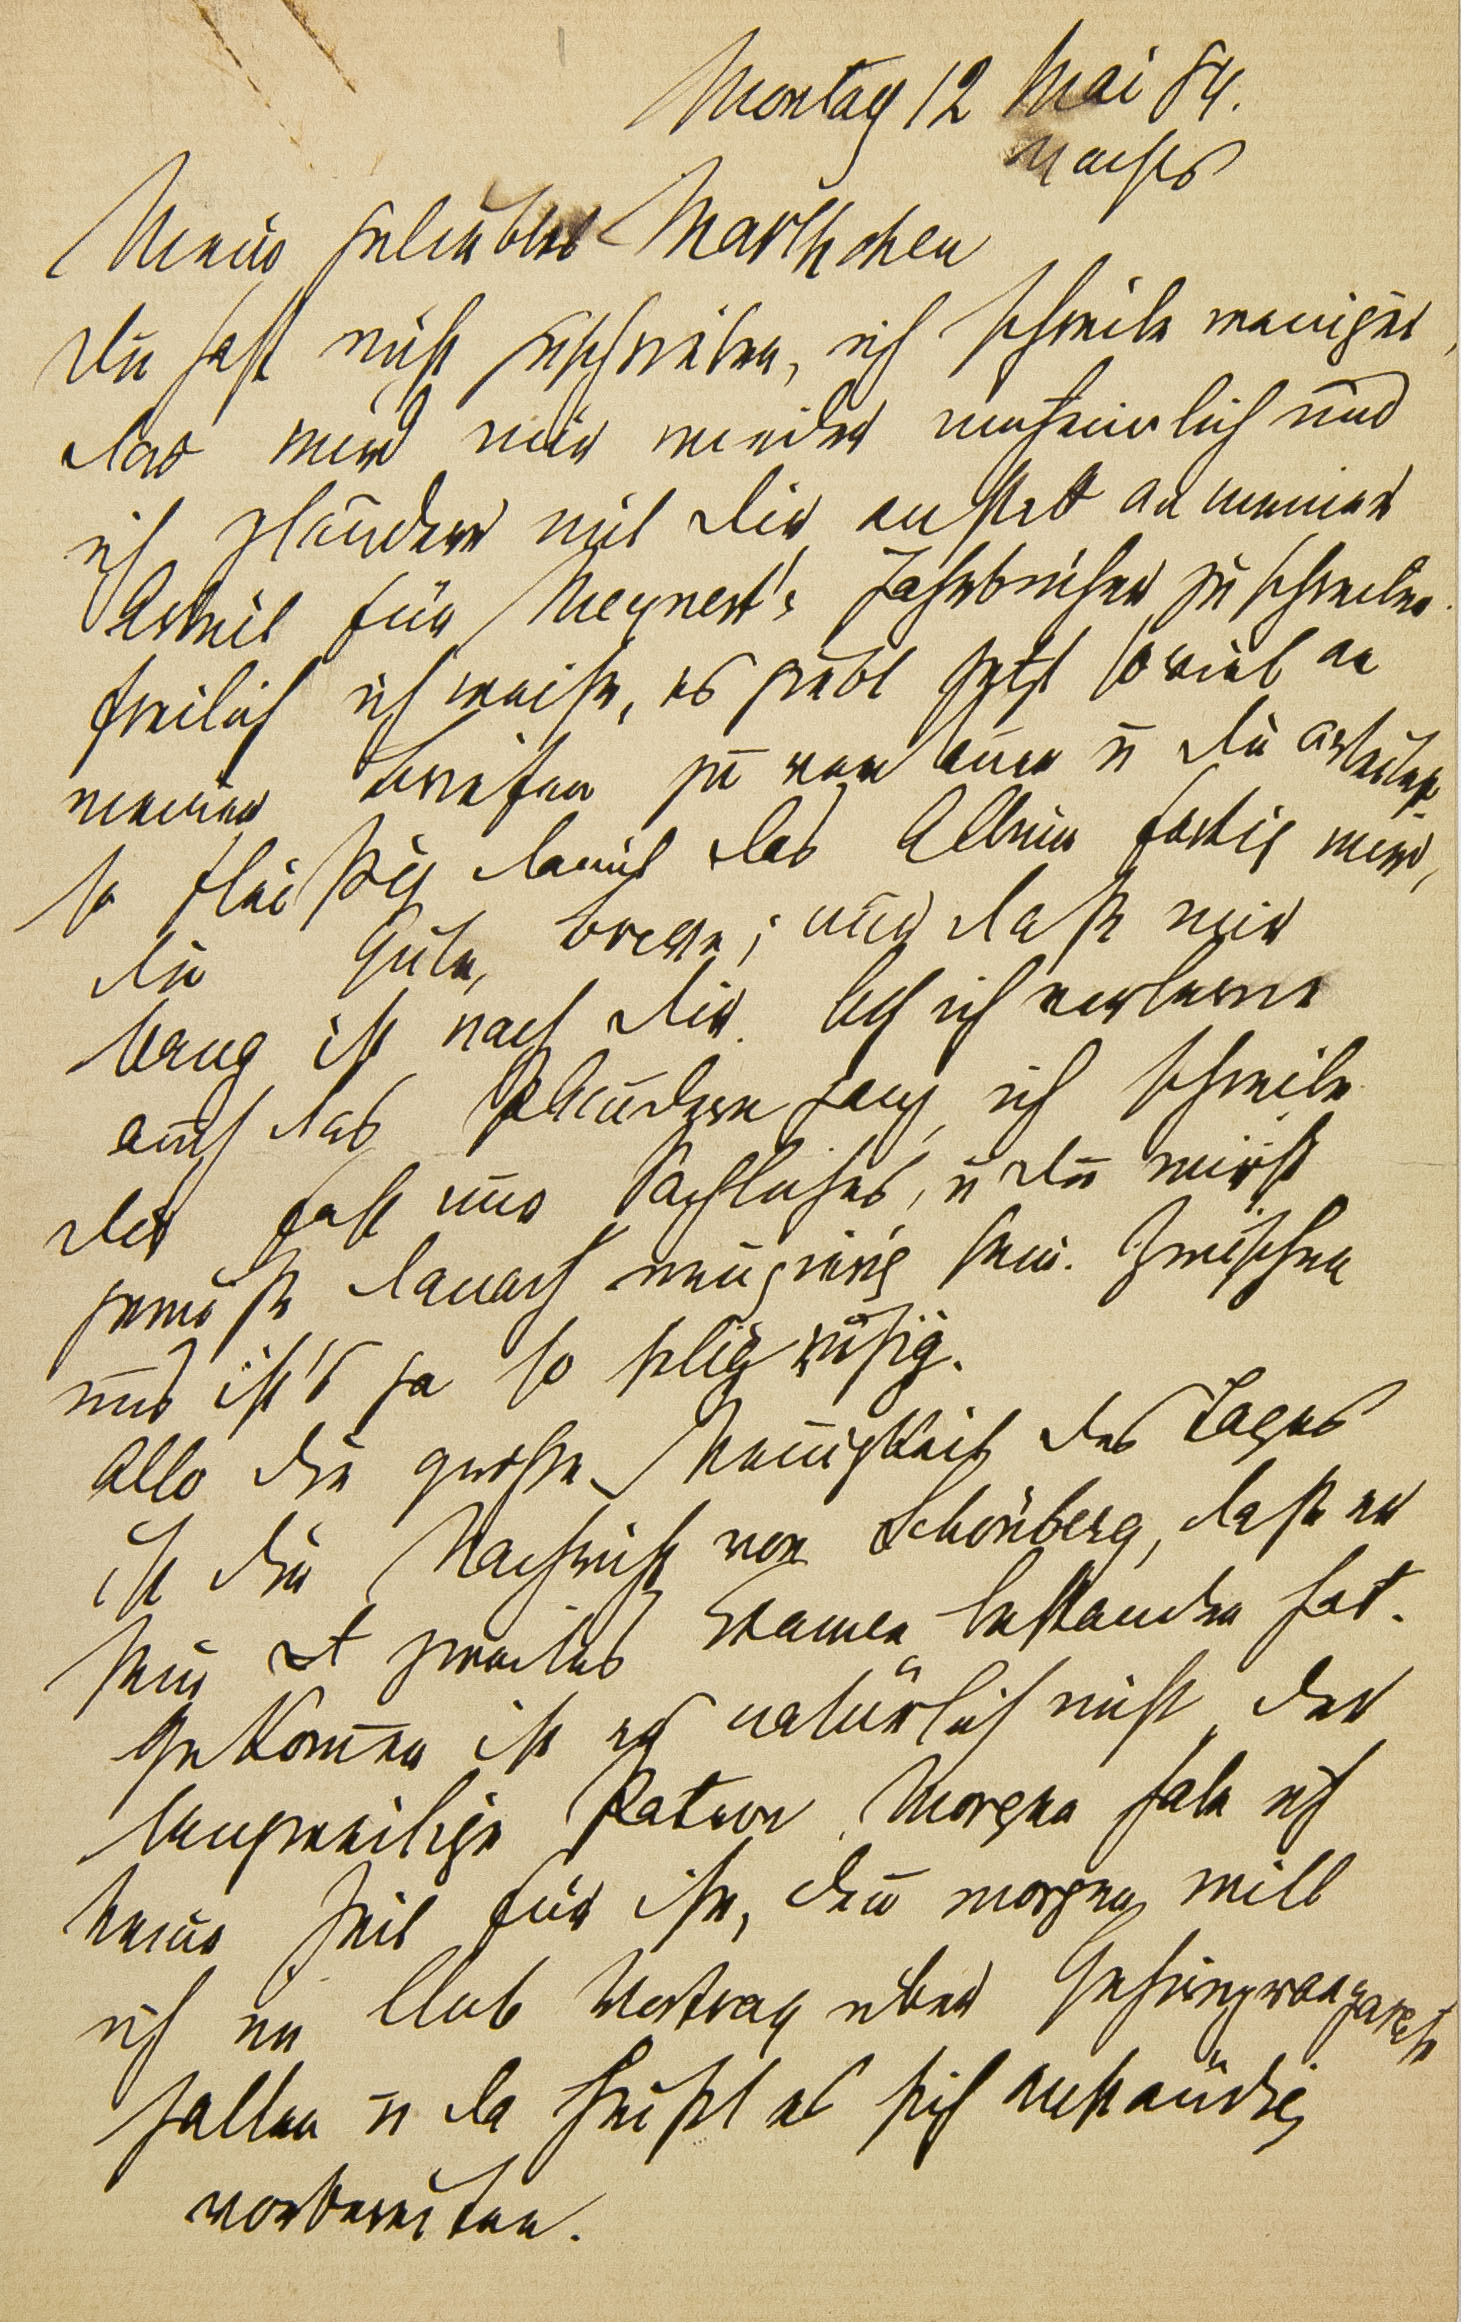 Montag 12 Mai 84.
Nachts
Mein geliebtes Marthchen
Du hast nicht geschrieben, ich schreibe weniger,
das wird mir wieder unheimlich und
ich plaudere mit Dir anstatt an meiner
Arbeit für Meynert's Jahrbücher zu schreiben.
Freilich ich weiß, es giebt jetzt soviel an
meinen Briefen zu u Du arbeitest
so fleißig damit das Album fertig wird,
Du Gute, Brave; und daß mir
bang ist nach Dir. Ach ich verlerne
auch das Plaudern ganz, ich schreibe
Dir fast nur Sachliches, u Du wirst
gewiß danach neugierig sein. Zwischen
uns ist's ja so selig ruhig.
Also die große Neuigkeit des Tages
ist die Nachricht von Schönberg, daß er
sein zweites Examen bestanden hat.
Gekommen ist er natürlich nicht, der
langweilige Patron. Morgen habe ich
keine Zeit für ihn, denn morgen will
ich im Club Vortrag über
halten u da heißt es sich anständig
vorbereiten.